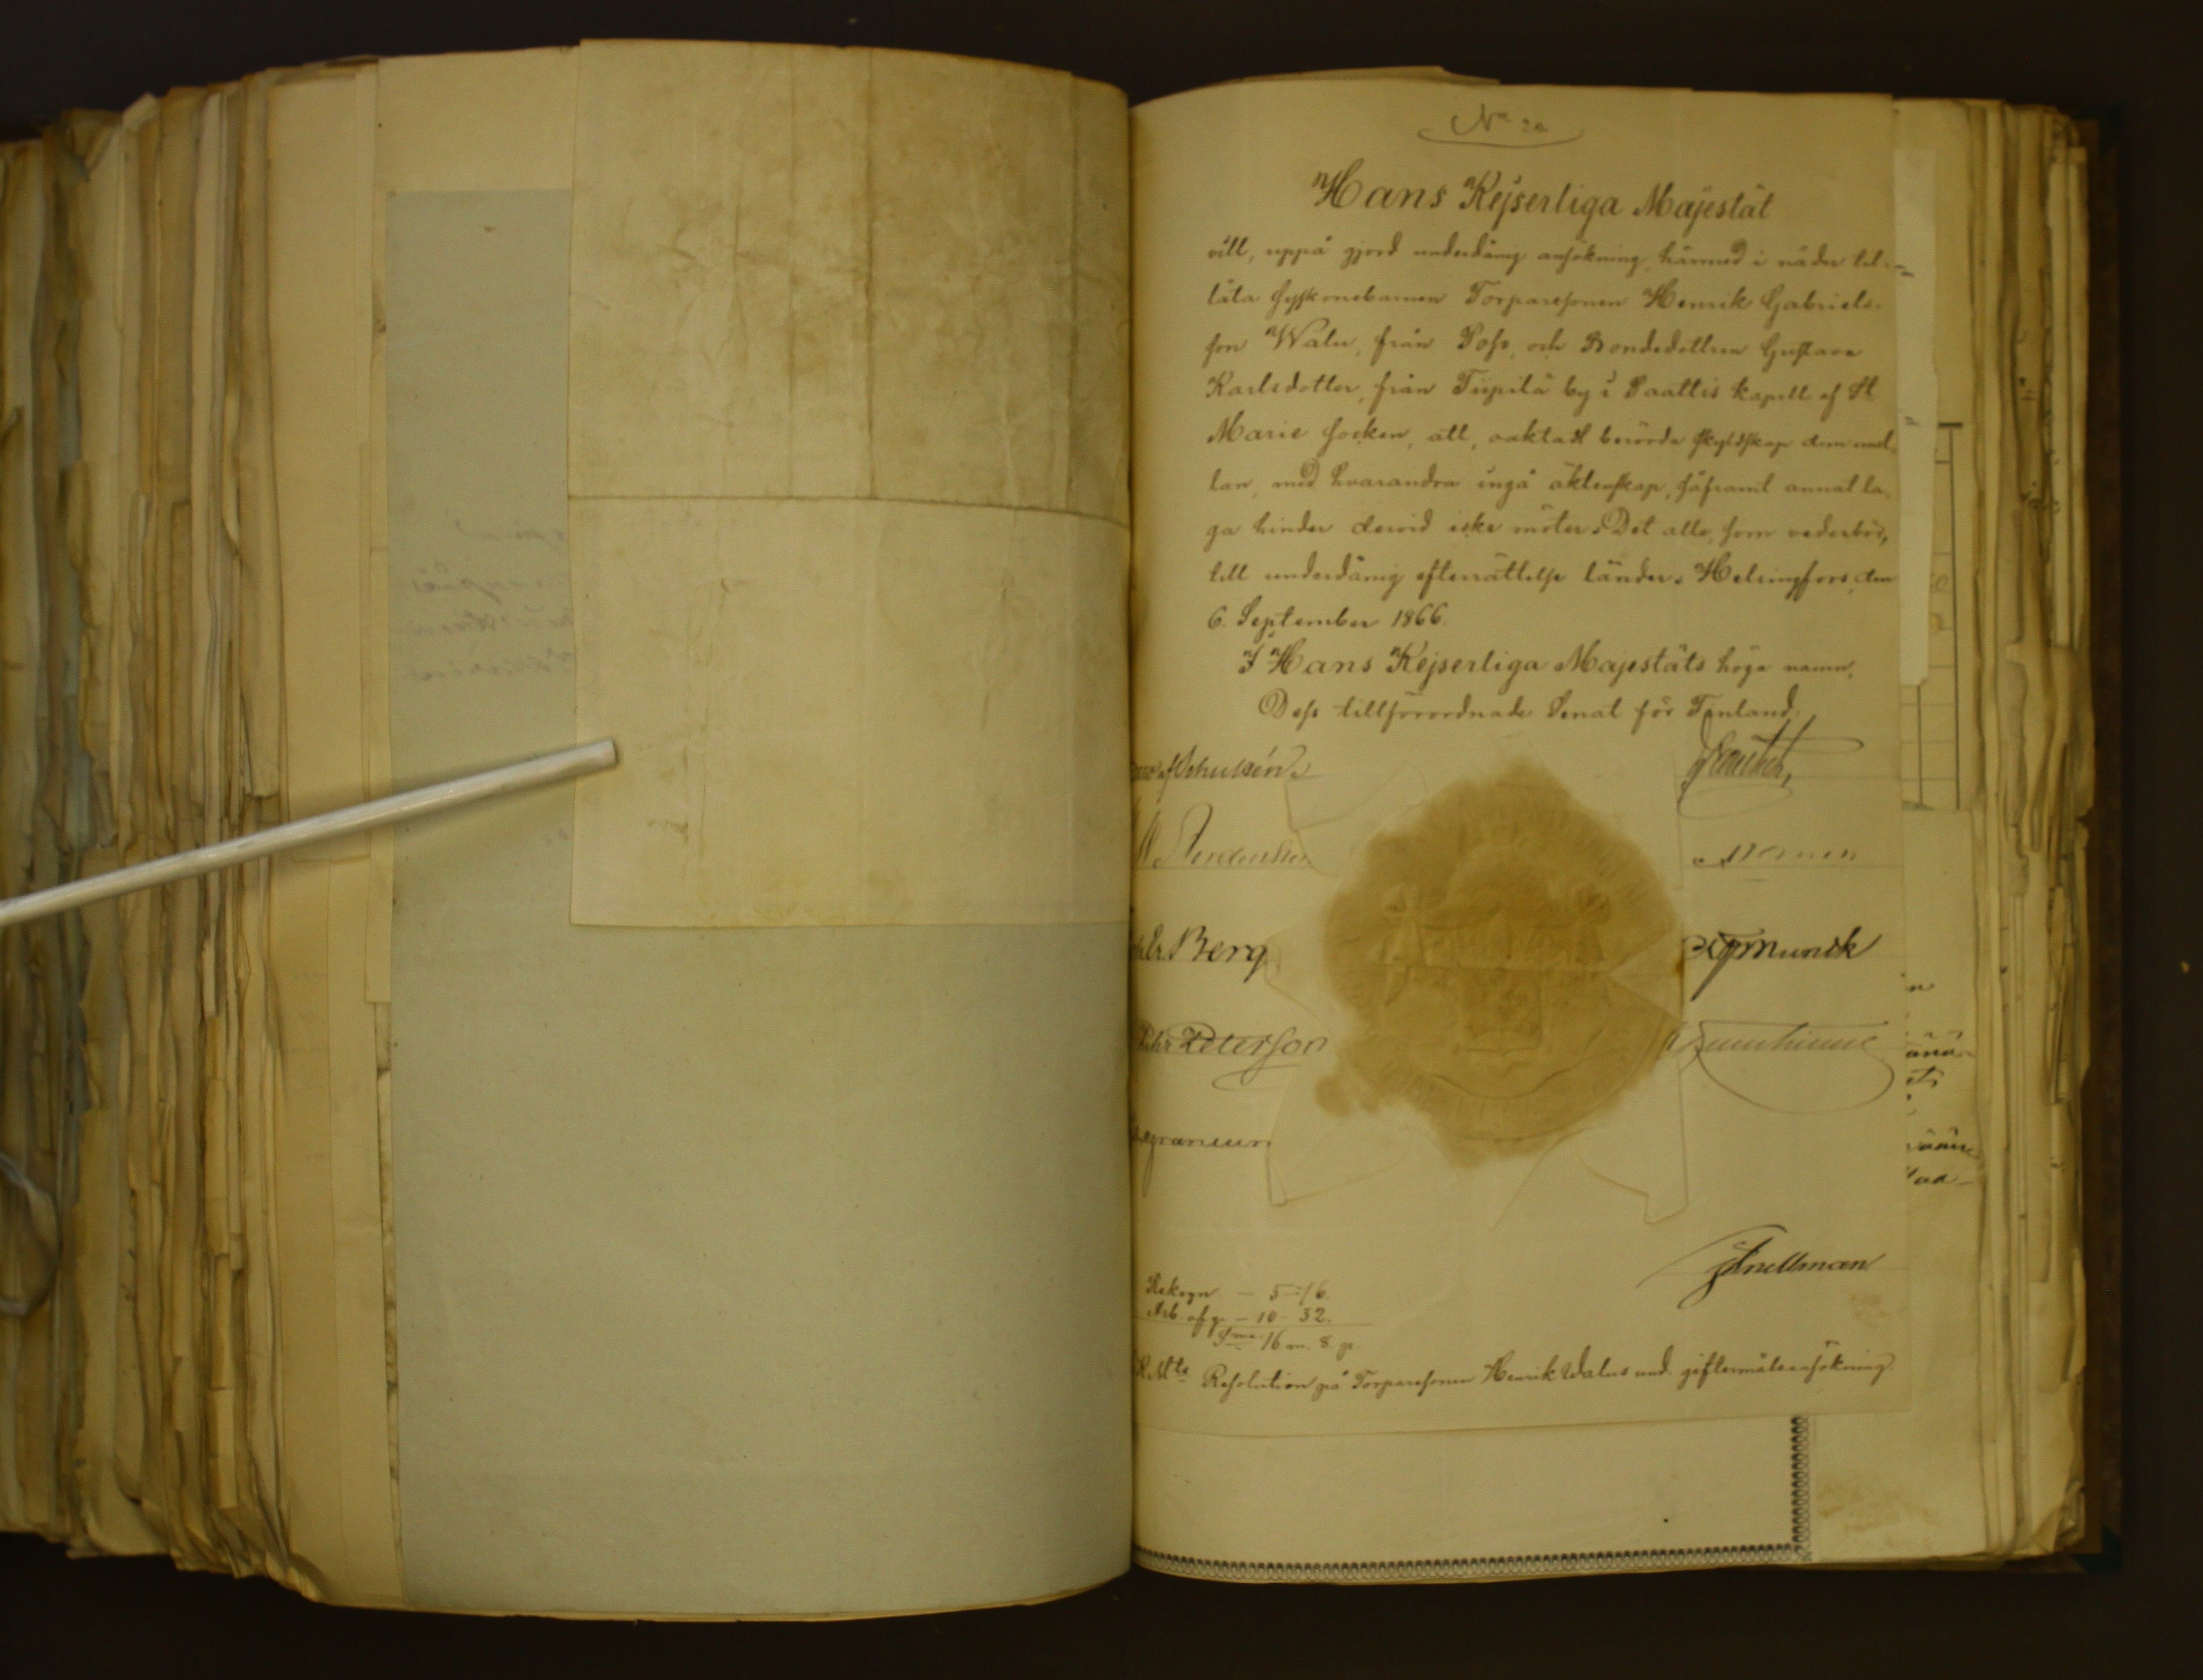 No 20
Hans Kejserliga Majestät
vill, uppå gjord underdånig ansökning, härmed i nåder til-
låta syskonebarnen Torparesonen Henrik Gabriels-
son Walus, från Pohs, och Bondedottren Gustava
Karlsdotter, från Tiipilä by i Paattis kapell af St
Marie socken, att, oaktadt berörda skyldskap dem emel-
lan, med hvarandra ingå äktenskap, såframt annat la-
ga hinder dervid icke möter. Det alle, som vederbör,
till underdånig efterrättelse länder. Helsingfors, den
6. September 1866.
I Hans Kejserliga Majestäts höga namn,
Dess tillförordnade Senat för Finland:
af Schultén.
Berg
Peterson
Munck
Snellman
Rekogn. – 5 – 16.
Arb. afg. – 10 – 32.
Sma 16 m. 8 p.
K. Mts Resolution på Torparesonen Henrik Walus und. giftermålsansökning